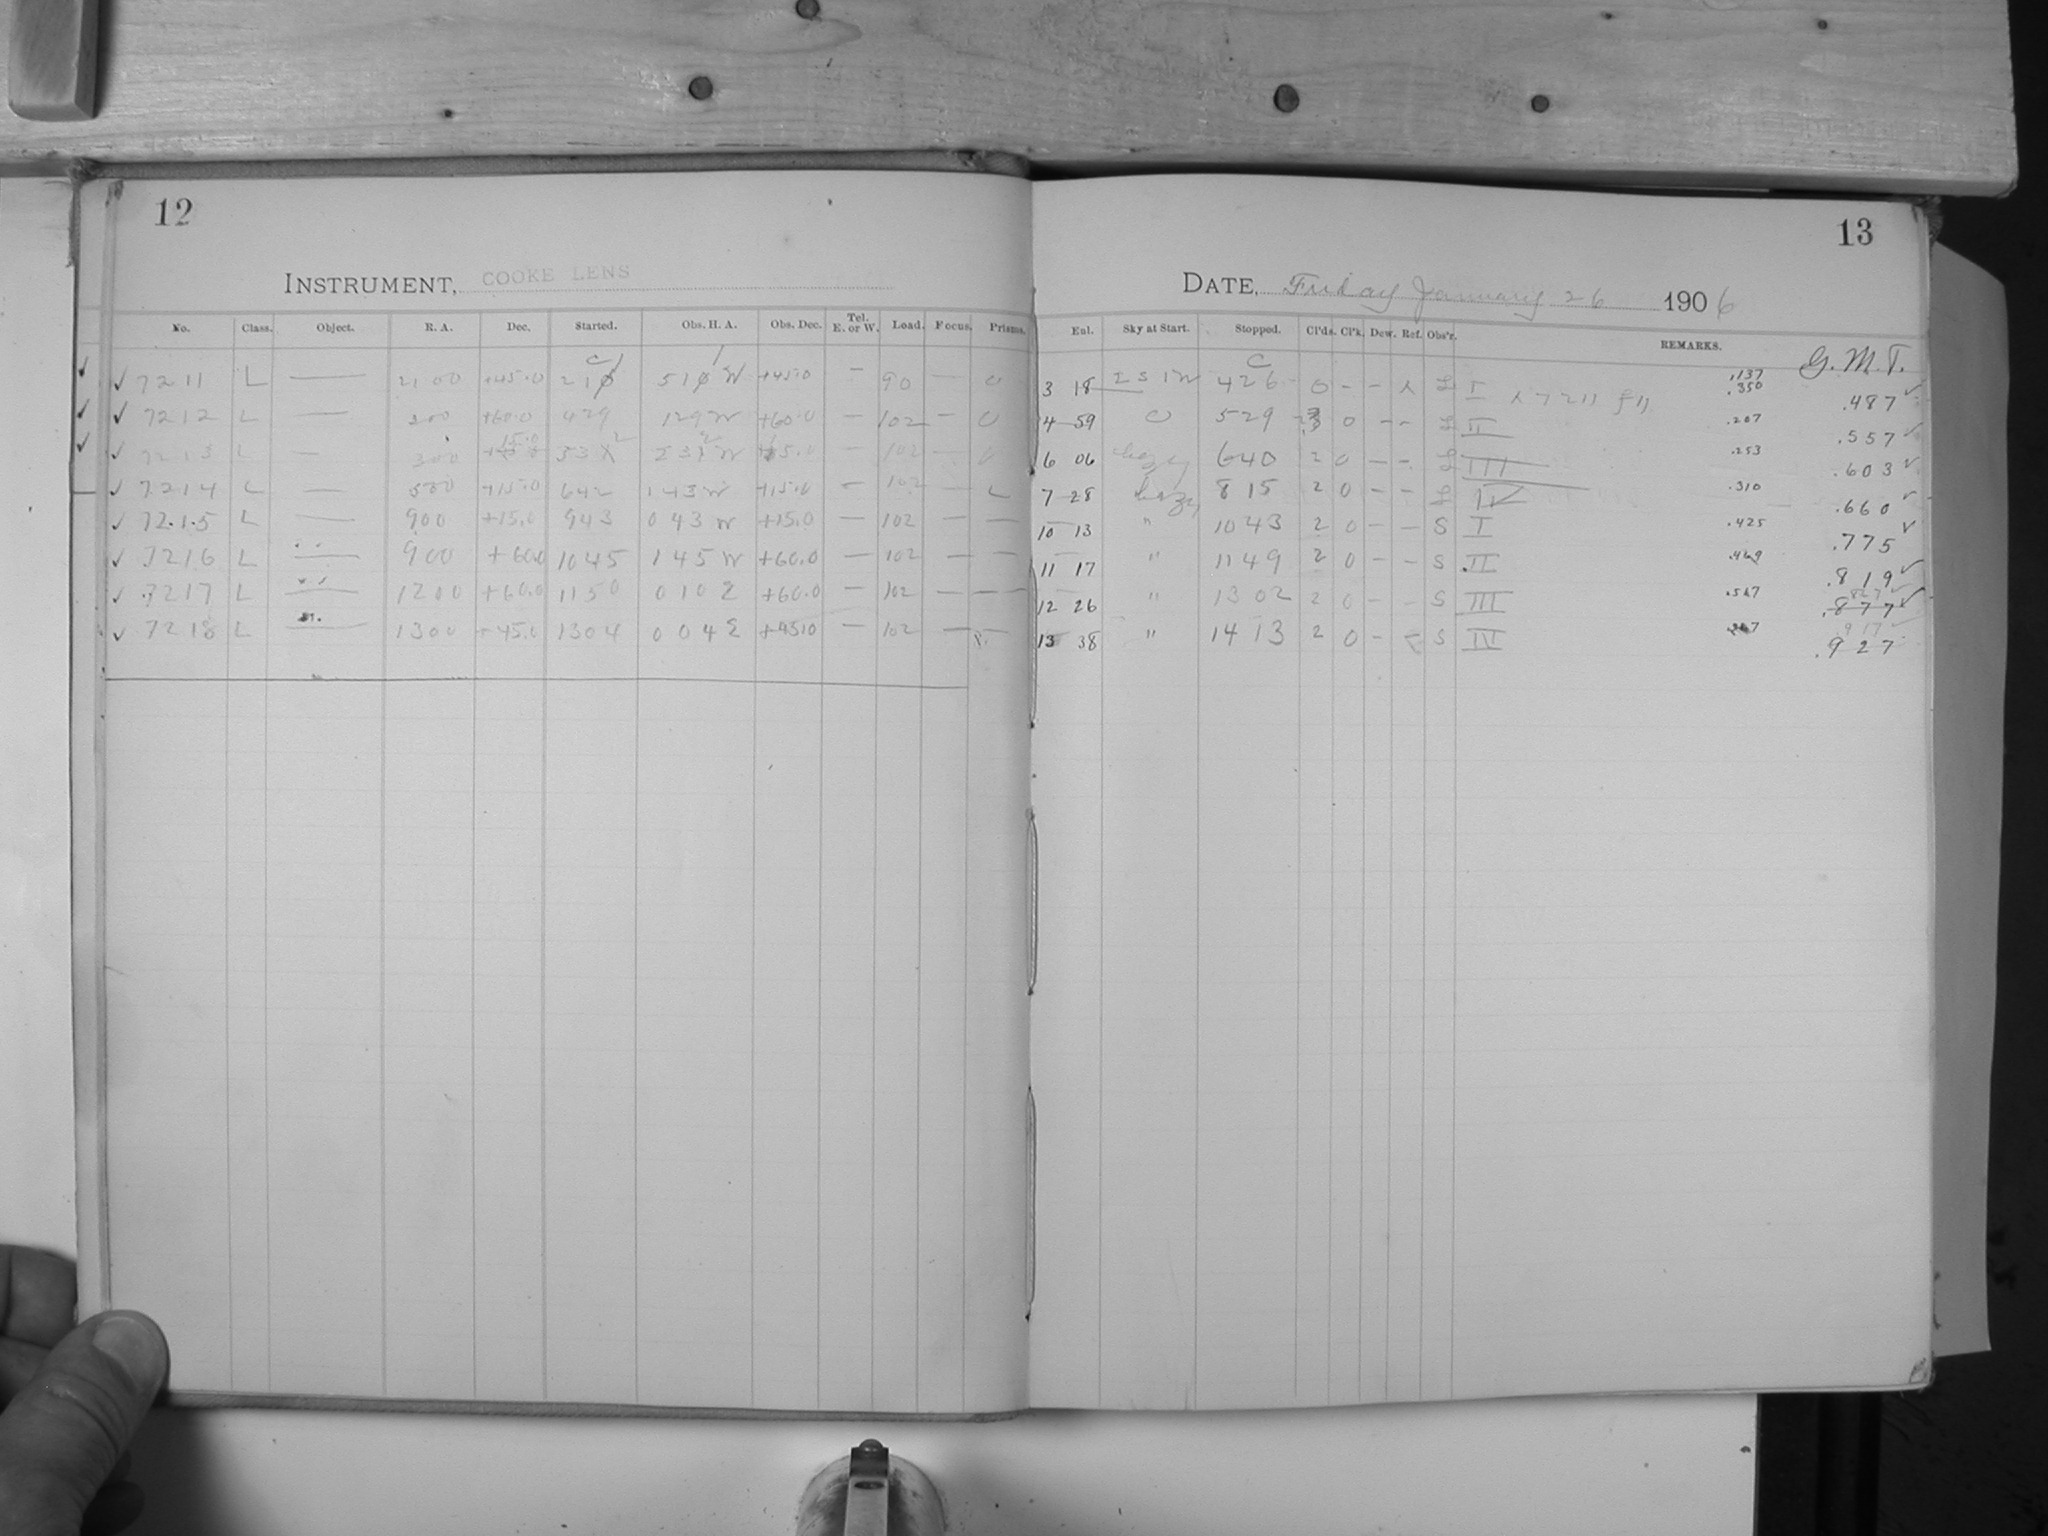 12
13
INSTRUMENT, COOKE LENS
DATE, Friday January 26 1906
No. Class. Object. R. A. Dec. Started. Obs. H. A. Obs. Dec. Tel. E. or W. Load. Focus. Prisms. Exl. Sky at Start. Stopped. Cl'ds. Cl'k. Dew. Ref. Obs'r. REMARKS. G. M. T.
✓ ✓ 7211 L — 21 00 +45.0 +45.0 — 90 — 0 3 18 426 0 – – L I .137 .350 .487 ✓
✓ ✓ 7212 L — 300 +60.0 429 129 W +60.0 — 102 — 0 4 59 C 529 0 – – L II .207 .557 ✓
✓ ✓ 7213 L — 300 102 — 6 06 hazy 640 2 0 – – L III .253 .603 ✓
✓ 7214 L — 500 +15.0 642 143 W +15.0 — 102 — 7 28 hazy 815 2 0 – – L IV .310 .660 ✓
✓ 7215 L — 900 +15.0 943 043 W +15.0 — 102 — — 10 13 " 1043 2 0 – – S I .425 .775 ✓
✓ 7216 L — 900 +60.0 1045 145 W +60.0 — 102 — — 11 17 " 1149 2 0 – – S II .469 .819 ✓
✓ 7217 L — 1200 +60.0 1150 010 E +60.0 — 102 — — 12 26 " 1302 2 0 – – S III .877 ✓
✓ 7218 L — 1300 +45.0 1304 004 E +45.0 — 102 — 13 38 " 1413 2 0 – S IV 917 .927